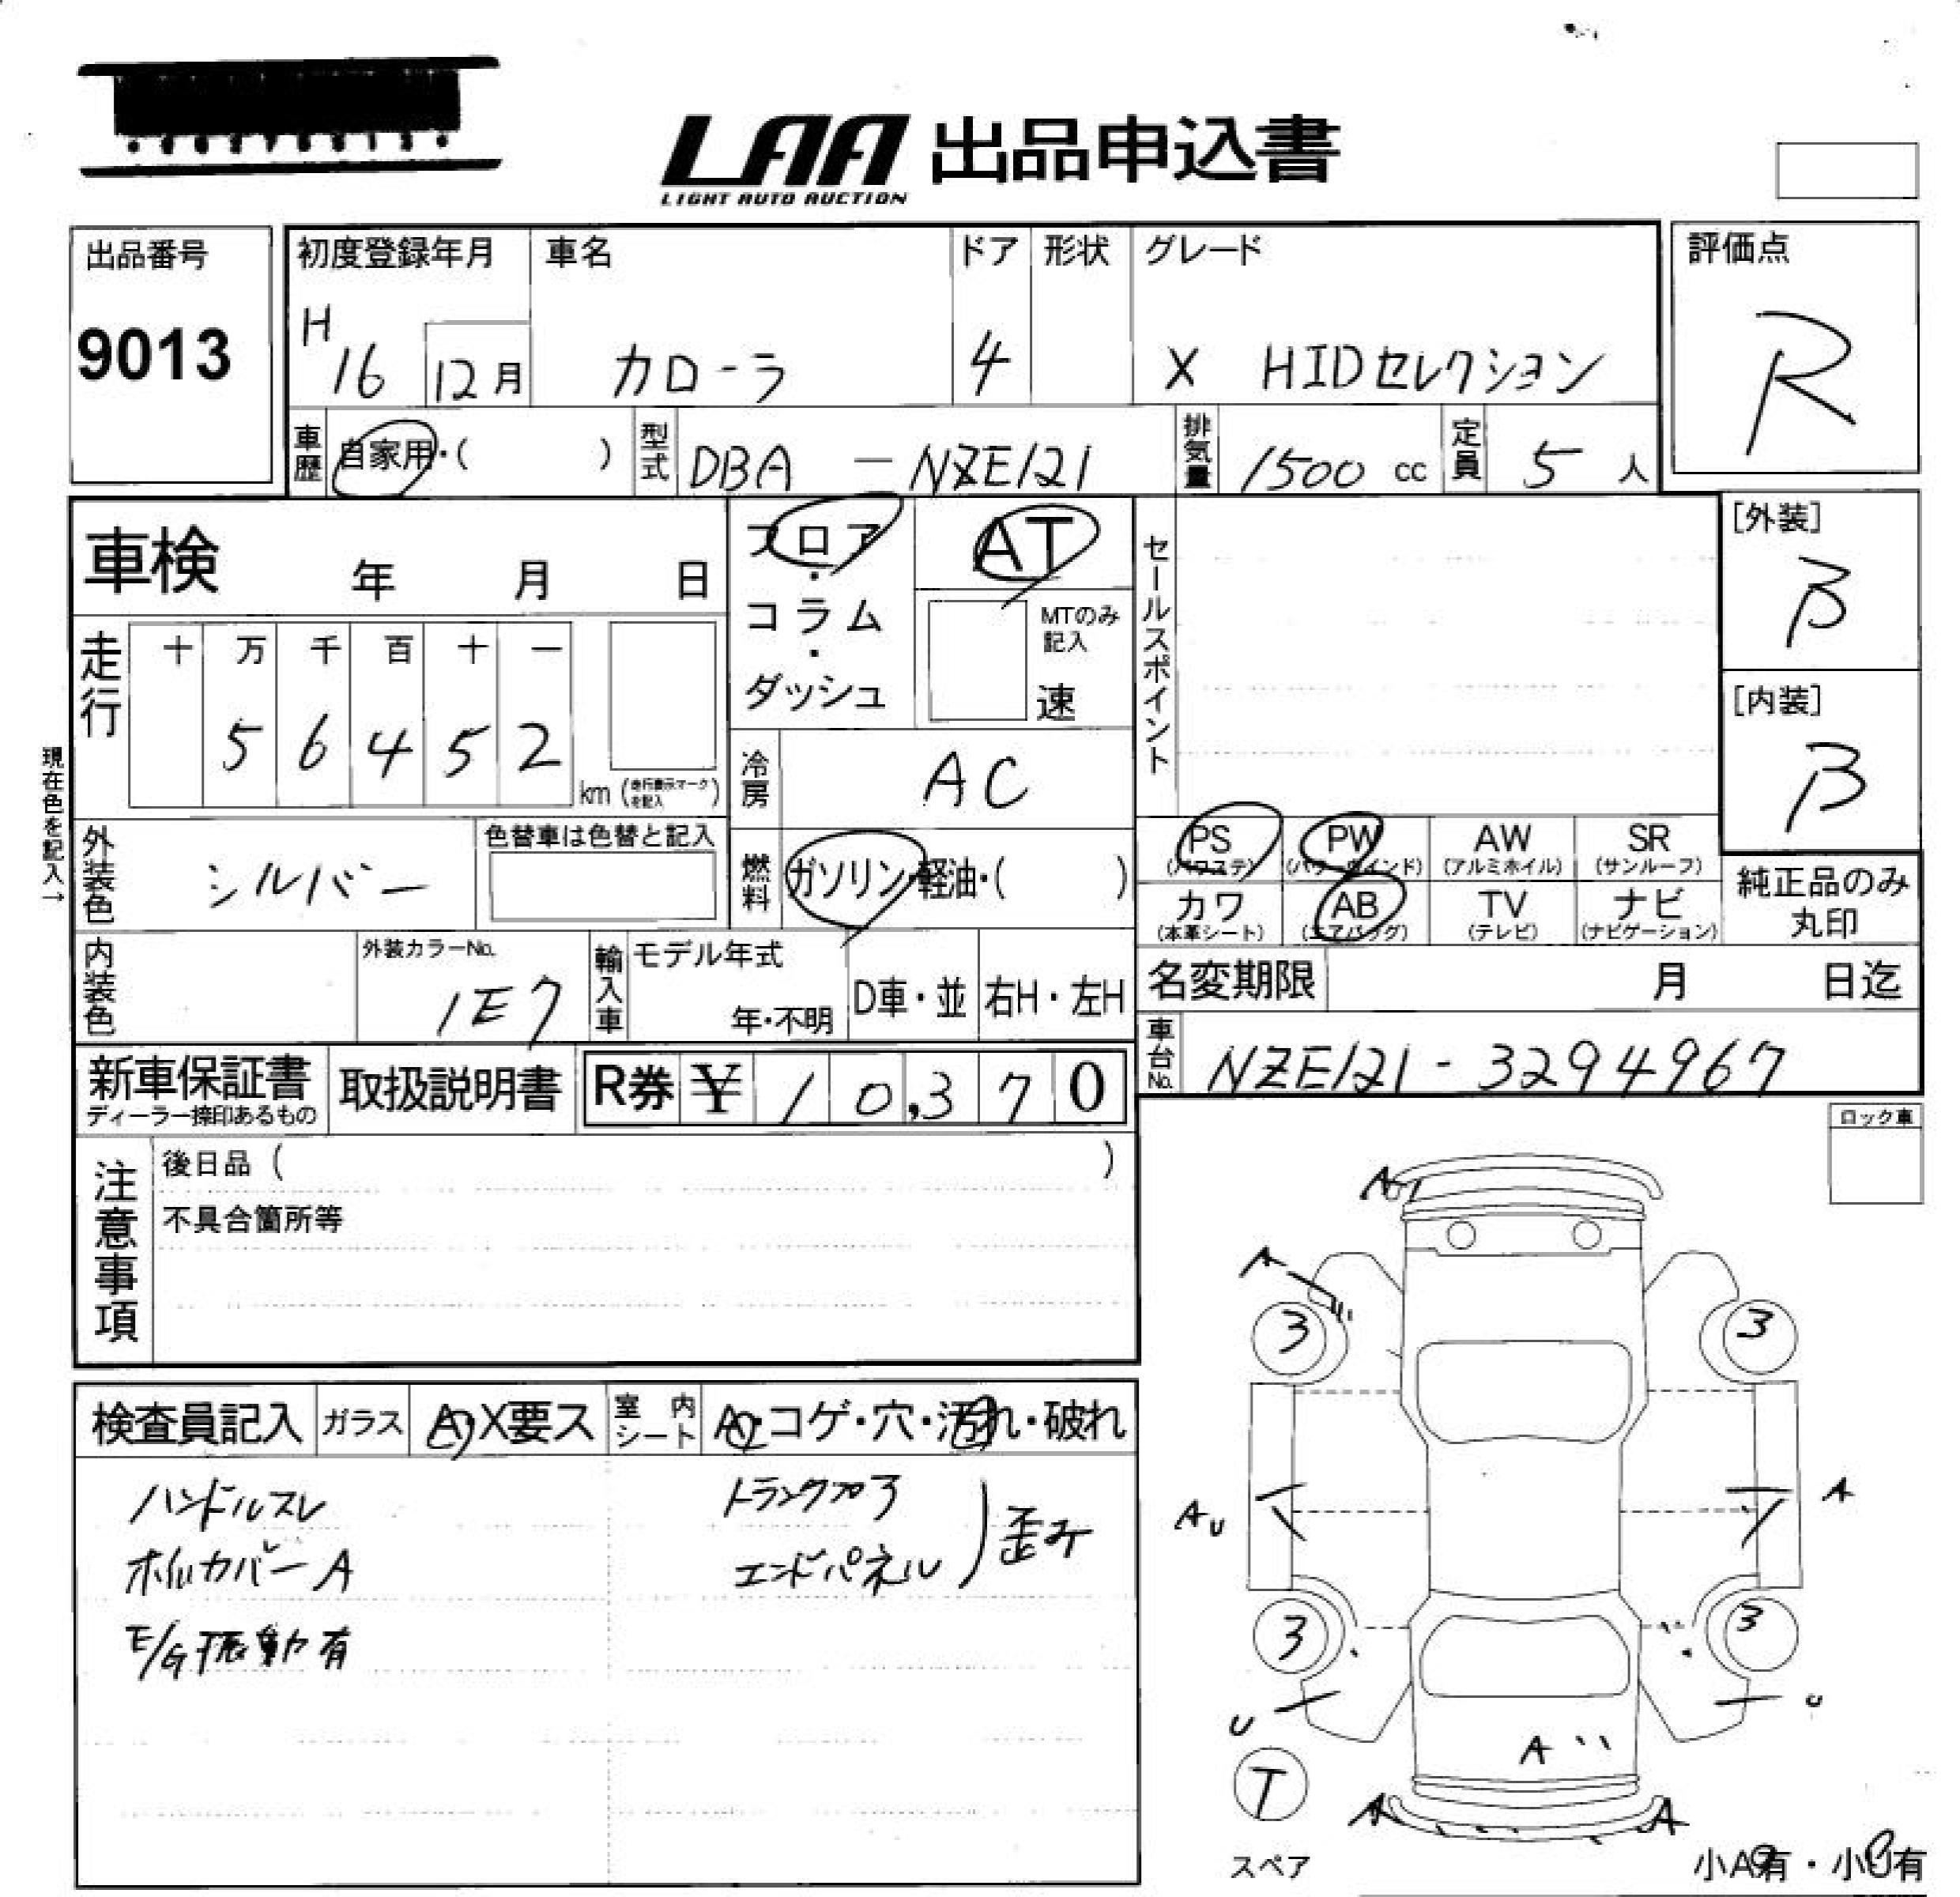 LAA 出品申込書
LIGHT AUTO AUCTION
出品番号
9013
初度登録年月 車名 ドア 形状 グレード
H16 12月 カローラ 4 X HIDセレクション
評価点
R
車歴 自家用・( ) 型式 DBA-NZE121 排気量 1500 cc 定員 5 人
車検 年 月 日
走行 十 万 千 百 十 一
5 6 4 5 2 km
(走行表示マークを記入)
現在色を記入→
フロア・コラム・ダッシュ
AT
MTのみ記入
速
冷房 AC
外装色 シルバー
色替車は色替と記入
燃料 ガソリン・軽油・( )
内装色
外装カラーNo.
1E7
輸入車 モデル年式
年・不明 D車・並 右H・左H
セールスポイント
[外装]
B
[内装]
B
PS (パワステ) PW (パワーウインド) AW (アルミホイル) SR (サンルーフ)
カワ (本革シート) AB (エアバッグ) TV (テレビ) ナビ (ナビゲーション)
純正品のみ丸印
名変期限 月 日迄
車台No. NZE121-3294967
新車保証書
ディーラー捺印あるもの
取扱説明書
R券 ¥ 10,370
注意事項
後日品 ( )
不具合箇所等
ロック車
検査員記入 ガラス A・X要ス 室内シート A・コゲ・穴・汚れ・破れ
ハンドルスレ
ホイルカバーA
E/G振動有
トランクフロア
エンドパネル
歪み
A
A
3 3
AU A
3 3
U U
A
T
A A
スペア
小A有・小U有